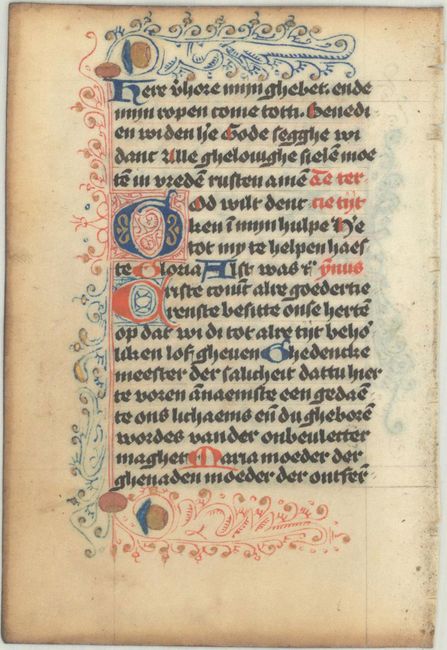 Here v̄hore mijn ghebet. ende
mijn ropen come totti. Benedi
en wi den h̄e Gode segghe wi
danc Alle ghelouighe sielen̄ moe
tē in vredē rusten amē Te ter
God wilt denc tie tijt
ken ī mijn hulpe He
tot my te helpen haes
te Gloria Alst was ymus
Criste comt alre goedertie
renste besitte onse hertē
op dat wi di tot alre tijt behō
liken lof gheuen Ghedencke
meester der salicheit dattu hier
te voren ānaemste een gedaē
te ons lichaems eñ du gheborē
wordes van der onbeuletter
maghet Maria moeder der
ghenaden moeder der ontfer